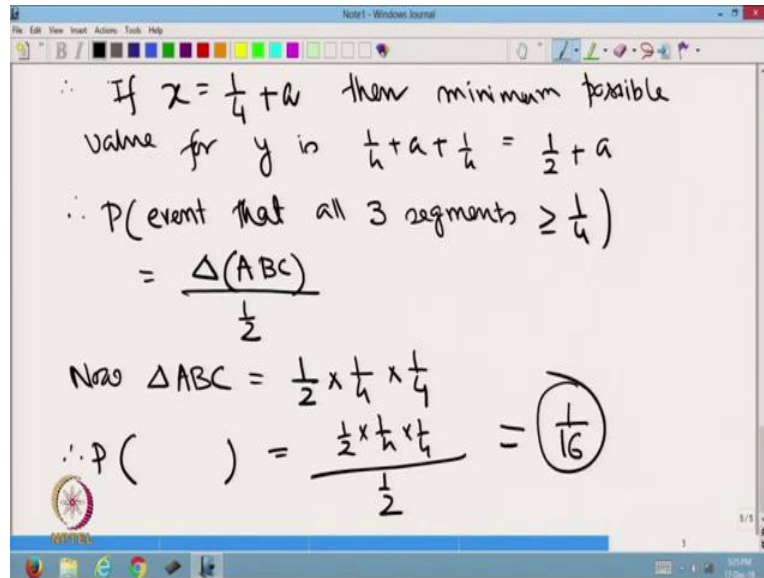 Note1 - Windows Journal
File Edit View Insert Actions Tools Help
∴ If x = 1/4 + a then minimum possible
value for y is 1/4 + a + 1/4 = 1/2 + a
∴ P(event that all 3 segments ≥ 1/4)
= Δ(ABC) / (1/2)
Now ΔABC = 1/2 × 1/4 × 1/4
∴ P( ) = (1/2 × 1/4 × 1/4) / (1/2) = 1/16
NPTEL
5/5
5
3:25 PM